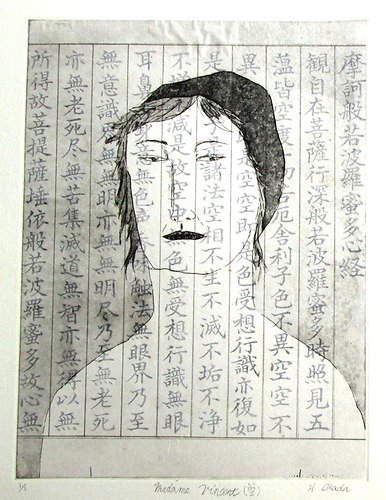 摩訶般若波羅蜜多心経
観自在菩薩行深般若波羅蜜多時照見五
蘊皆空度切苦厄舎利子色不異空空不
異是空空即是色受想行識亦復如
是子是諸法空相不生不滅不垢不浄
不増減是故空中無色無受想行識無眼
耳鼻身無色声味触法無眼界乃至
無意識無無明亦無無明尽乃至無老死
亦無老死尽無苦集滅道無智亦無得以無
所得故菩提薩埵依般若波羅蜜多故心無
Madame Vincent (空) H Okada